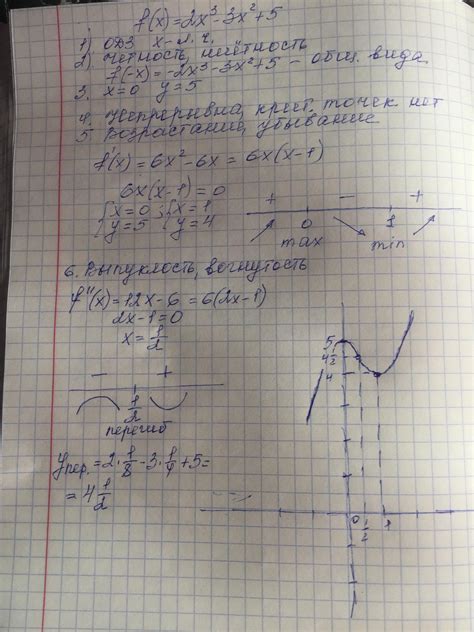 f(x)=2x³-3x²+5
1) ОДЗ x-л.ч.
2) Чётность, нечётность
f(-x)=-2x³-3x²+5 - общ. вида
3. x=0 y=5
4. Непрерывна, крит. точек нет
5 Возрастание, убывание
f'(x)=6x²-6x=6x(x-1)
6x(x-1)=0
{x=0 ; {x=1
{y=5 {y=4
+ - +
0 1
max min
6. Выпуклость, вогнутость
f''(x)=12x-6=6(2x-1)
2x-1=0
x=1/2
- +
1/2
перегиб
yпер.=2·1/8-3·1/4+5=
=4 1/2
5
4 1/2
4
0 1/2 1